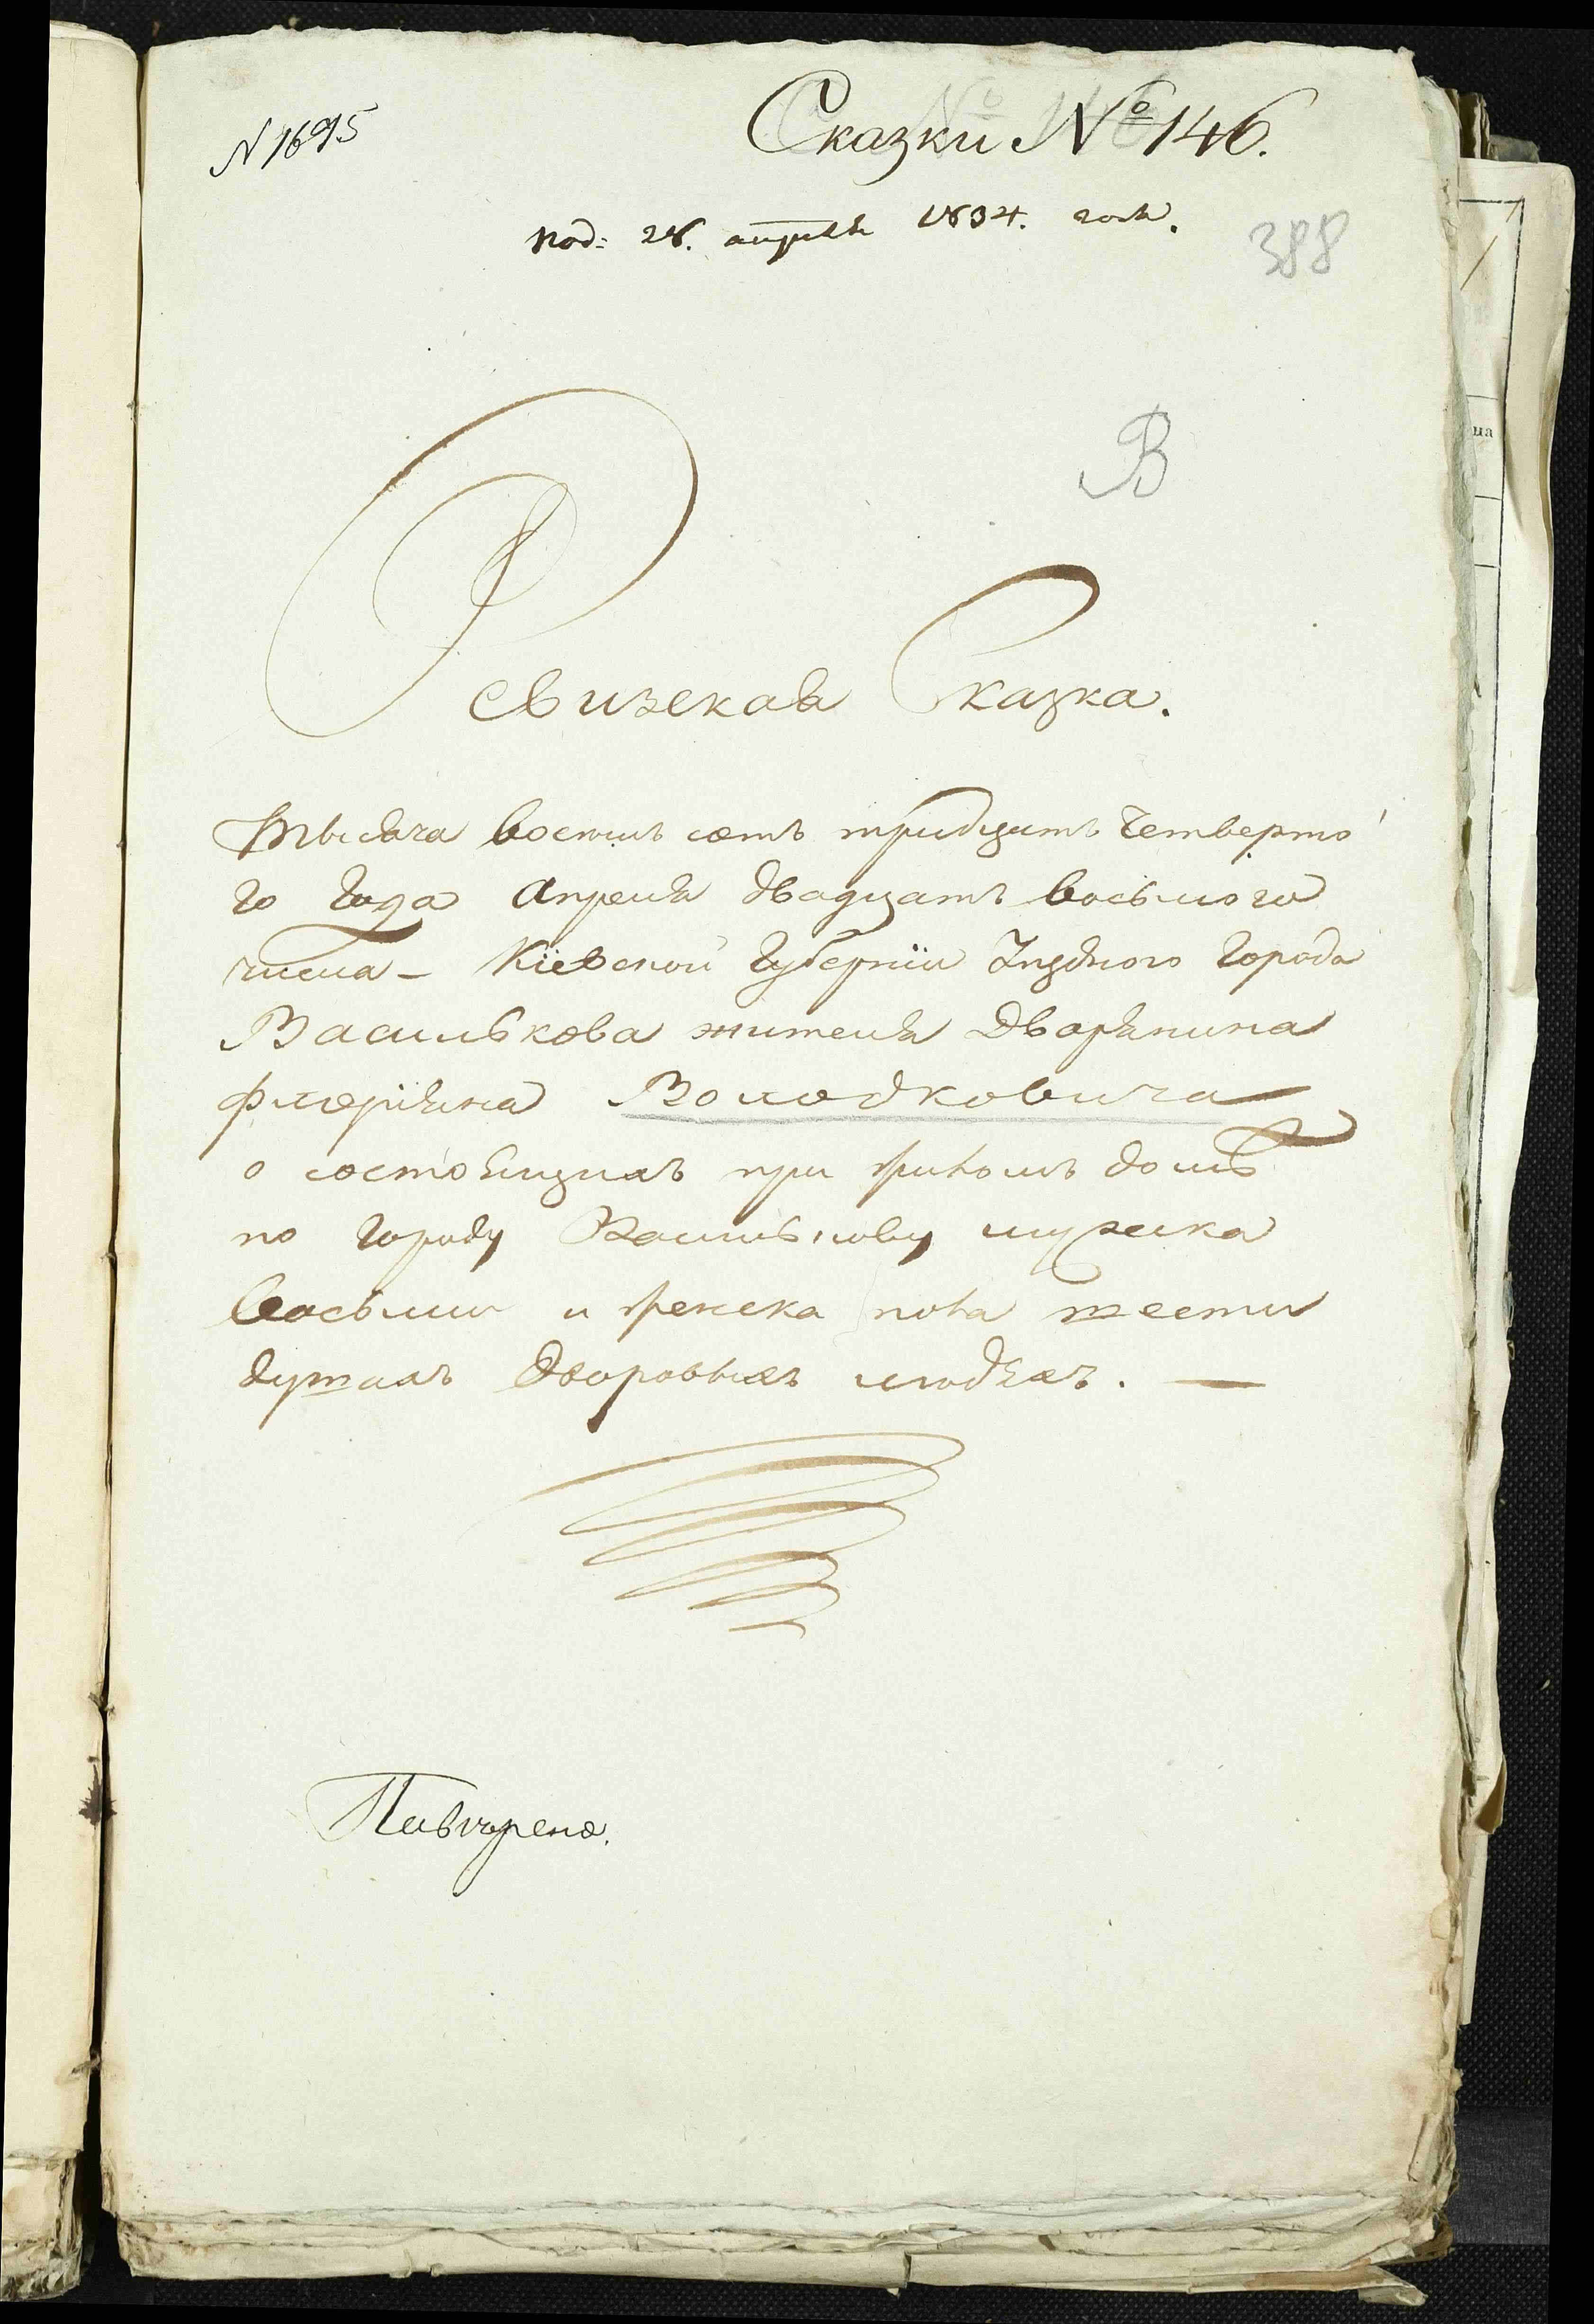 N 1695
Сказки № 146.
под: 28. апреля 1834. года.
388
В
Ревизская Сказка.
Тысяча восемь сотъ тридцать четверто
го года апреля двадцать восьмого
числа – Кіевской Губерніи Уезднаго Города
Василькова жителя Дворянина
Флоріяна Володковича
о состоящихъ при домѣ
по городу Василькову мужска
восьми и женска пола шести
душахъ дворовыхъ людяхъ. —
на